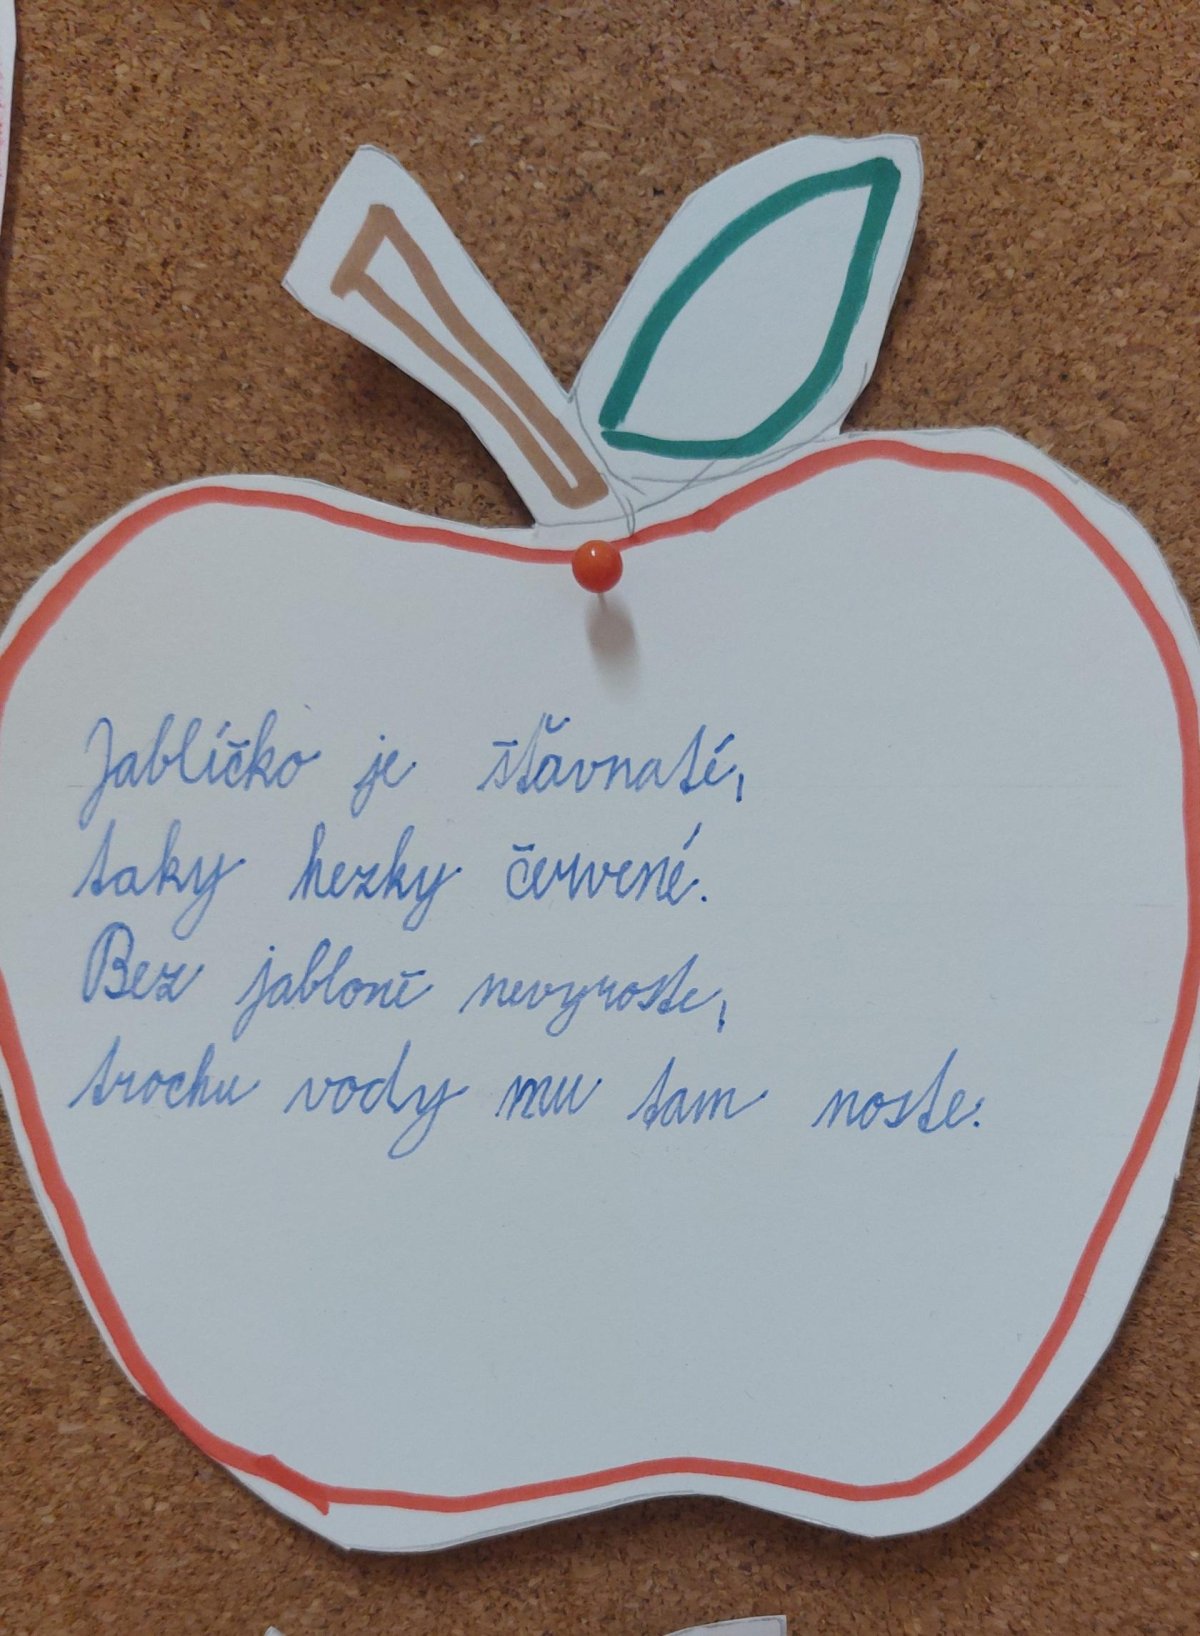 Jablíčko je šťavnaté,
taky hezky červené.
Bez jabloně nevyroste,
trochu vody mu tam noste.